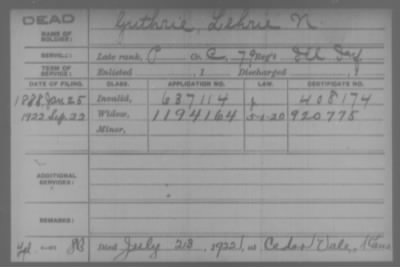 DEAD
NAME OF SOLDIER: Guthrie, Lehrie N.
SERVICE: Late rank, P Co. C, 79 Reg't Ill Inf.
TERM OF SERVICE: Enlisted , 1 Discharged , 1
DATE OF FILING. CLASS. APPLICATION NO. LAW. CERTIFICATE NO.
1888 Jan 25 Invalid, 637114 408174
1922 Sep 22 Widow, 1194164 5-1-20 920775
Minor,
ADDITIONAL SERVICES:
REMARKS:
Died July 28, 1922, at Cedar Vale, Kans